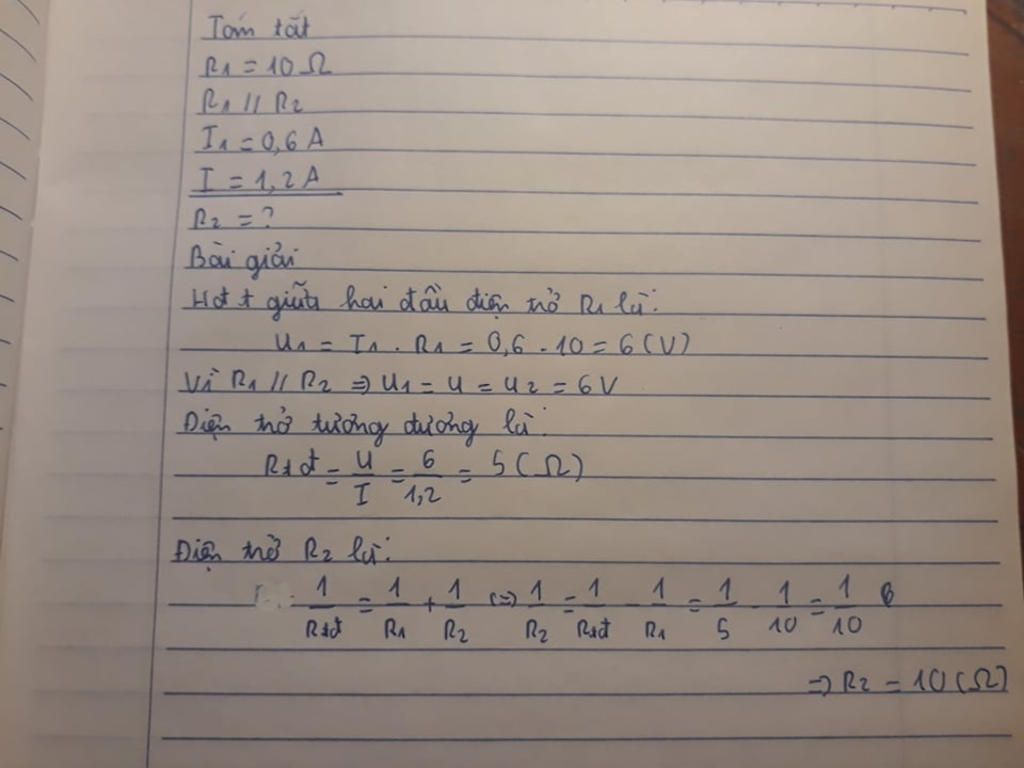 Tóm tắt
R1 = 10 Ω
R1 // R2
I1 = 0,6 A
I = 1,2 A
R2 = ?
Bài giải
Hđt giữa hai đầu điện trở R1 là:
U1 = I1 . R1 = 0,6 . 10 = 6 (V)
Vì R1 // R2 => U1 = U = U2 = 6V
Điện trở tương đương là:
Rtđ = U/I = 6/1,2 = 5 (Ω)
Điện trở R2 là:
1/Rtđ = 1/R1 + 1/R2 (=) 1/R2 = 1/Rtđ - 1/R1 = 1/5 - 1/10 = 1/10
=> R2 = 10 (Ω)